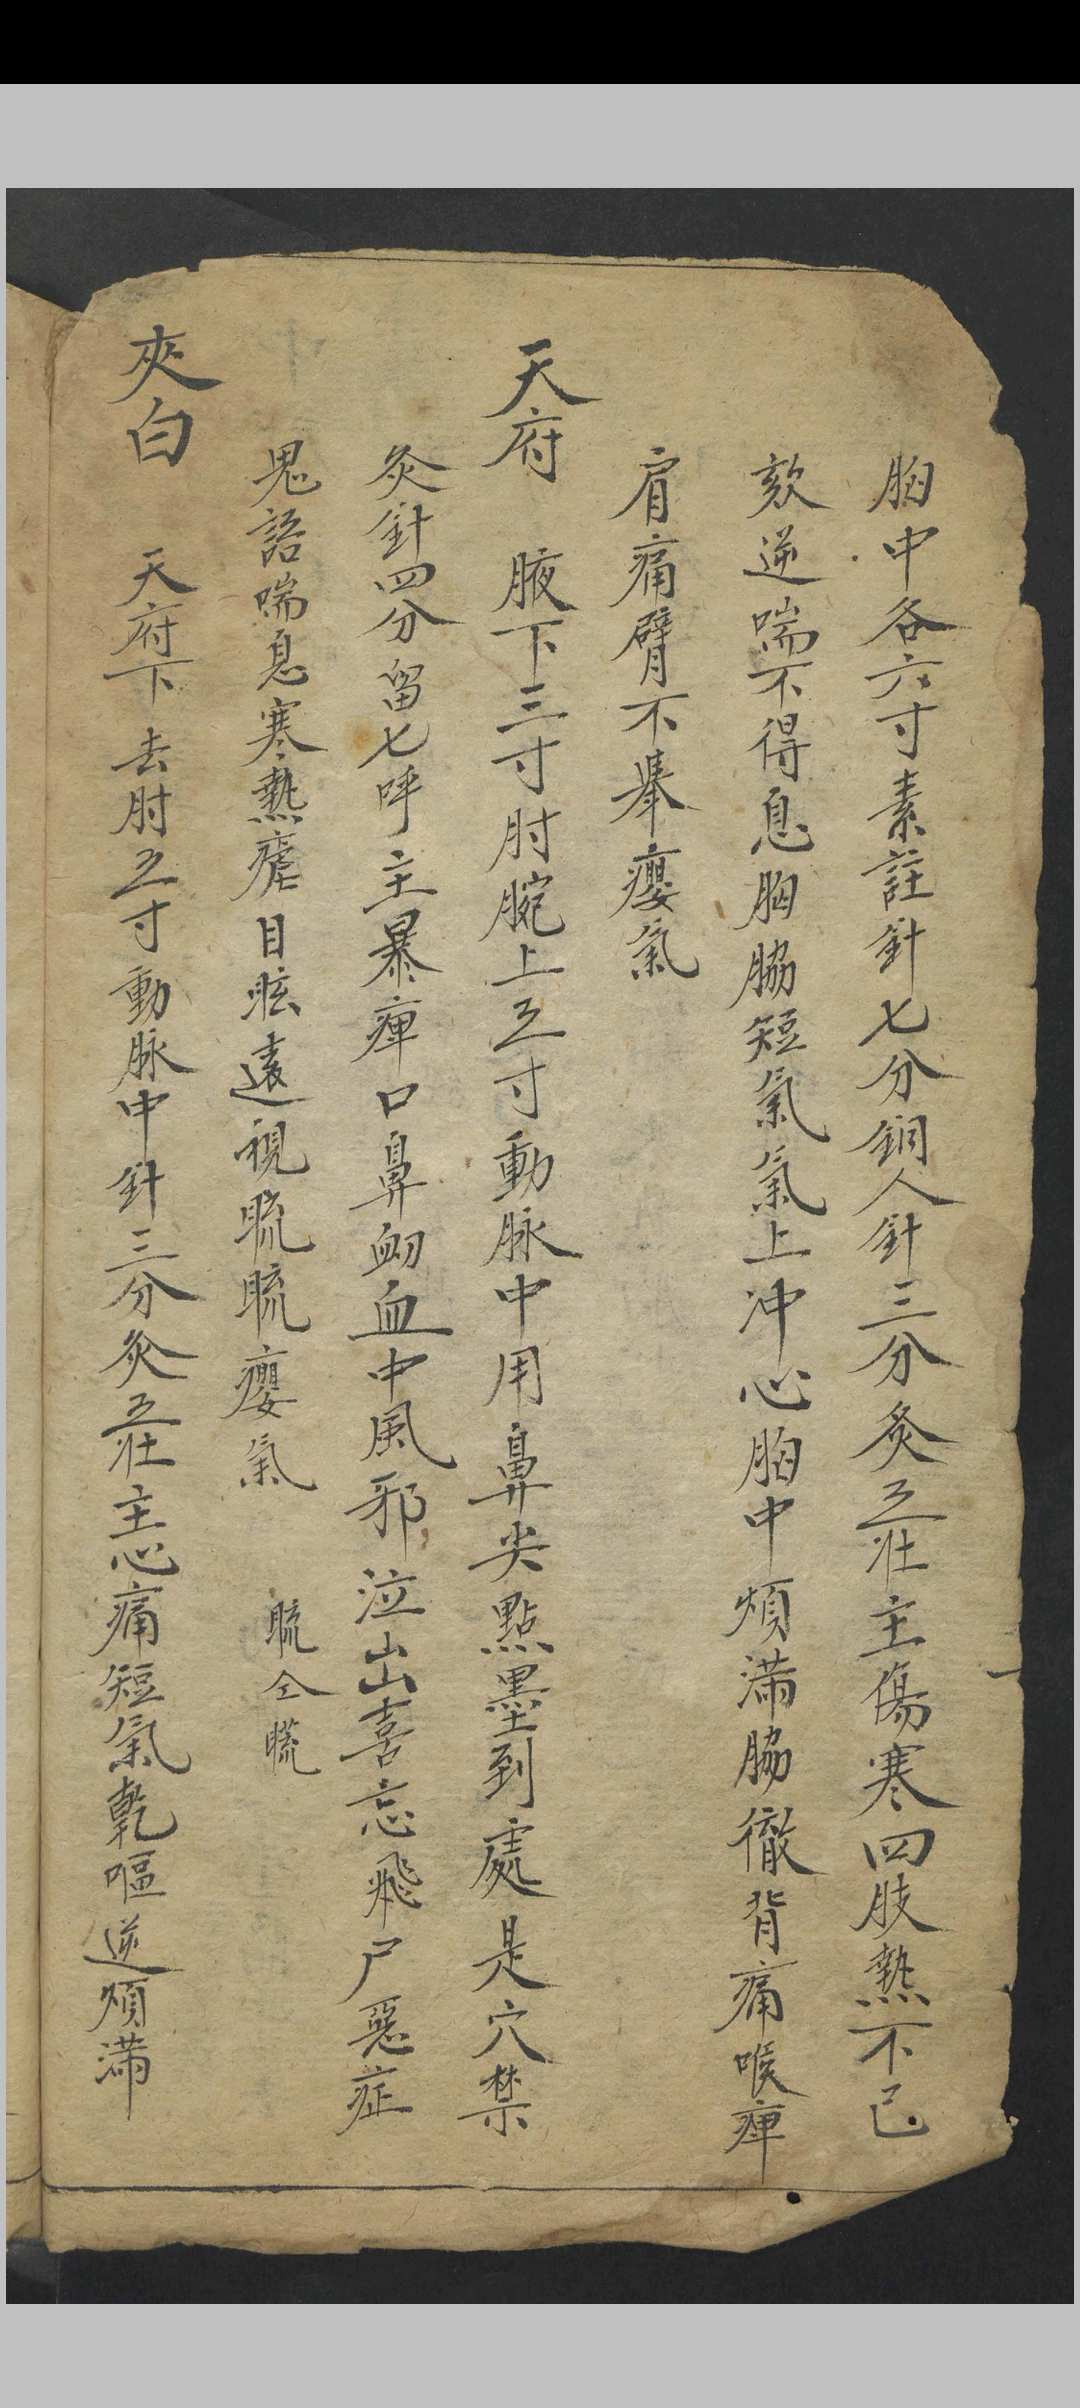 胸中各六寸素註針七分銅人針三分灸五壯主傷寒四肢熱不已
欬逆喘不得息胸脇短氣氣上冲心胸中煩滿脇徹背痛喉痺
肩痛臂不舉癭氣
天府 腋下三寸肘腕上五寸動脉中用鼻尖點墨到處是穴禁
灸針四分留七呼主暴痺口鼻衂血中風邪泣出喜忘飛尸惡症
鬼語喘息寒熱瘧目眩遠視䀮䀮癭氣 䀮仝䀮
夾白 天府下去肘五寸動脉中針三分灸五壯主心痛短氣乾嘔逆煩滿